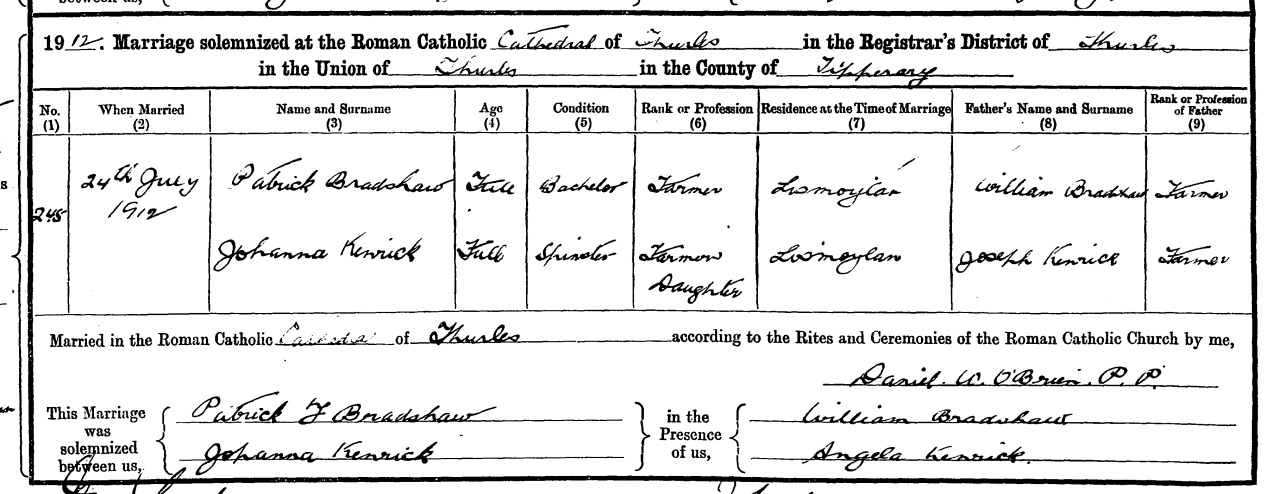 1912. Marriage solemnized at the Roman Catholic Cathedral of Thurles in the Registrar's District of Thurles
in the Union of Thurles in the County of Tipperary
No. (1) When Married (2) Name and Surname (3) Age (4) Condition (5) Rank or Profession (6) Residence at the Time of Marriage (7) Father's Name and Surname (8) Rank or Profession of Father (9)
245 24th July 1912 Patrick Bradshaw Full Bachelor Farmer Lismoylan William Bradshaw Farmer
Johanna Kenrick Full Spinster Farmers Daughter Lismoylan Joseph Kenrick Farmer
Married in the Roman Catholic Cathedral of Thurles according to the Rites and Ceremonies of the Roman Catholic Church by me,
Daniel W. O'Brien. P. P.
This Marriage was solemnized between us,
Patrick F Bradshaw
Johanna Kenrick
in the Presence of us,
William Bradshaw
Angela Kenrick.